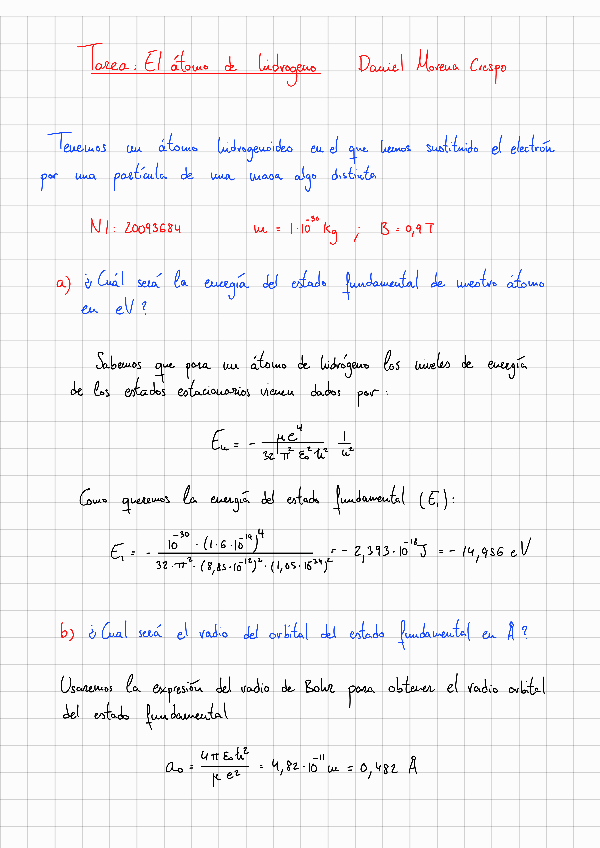 Tarea: El átomo de hidrógeno Daniel Morena Crespo
Tenemos un átomo hidrogenoideo en el que hemos sustituido el electrón
por una partícula de una masa algo distinta
NI: 20093684 m = 1·10⁻³⁰ Kg ; B = 0,9 T
a) ¿Cuál será la energía del estado fundamental de nuestro átomo
en eV?
Sabemos que para un átomo de hidrógeno los niveles de energía
de los estados estacionarios vienen dados por:
Eₙ = - μe⁴ / 32 π² ε₀² ħ² 1 / n²
Como queremos la energía del estado fundamental (E₁):
E₁ = - 10⁻³⁰ · (1.6·10⁻¹⁹)⁴ / 32·π²·(8,85·10⁻¹²)²·(1,05·10⁻³⁴)² = - 2,393·10⁻¹⁸ J = - 14,956 eV
b) ¿Cual será el radio del orbital del estado fundamental en Å?
Usaremos la expresión del radio de Bohr para obtener el radio orbital
del estado fundamental
a₀ = 4π ε₀ ħ² / μ e² = 4,82·10⁻¹¹ m = 0,482 Å